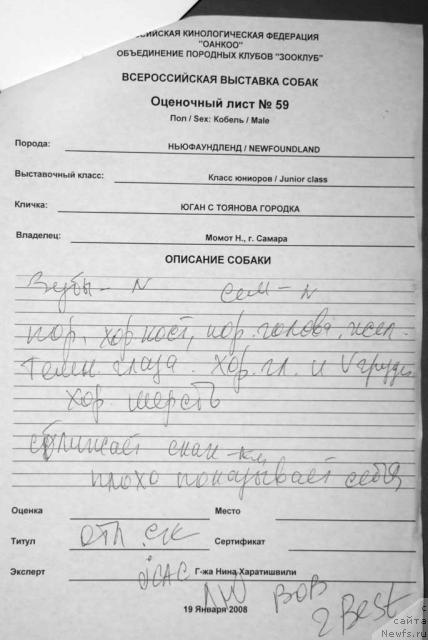 РОССИЙСКАЯ КИНОЛОГИЧЕСКАЯ ФЕДЕРАЦИЯ
"ОАНКОО"
ОБЪЕДИНЕНИЕ ПОРОДНЫХ КЛУБОВ "ЗООКЛУБ"
ВСЕРОССИЙСКАЯ ВЫСТАВКА СОБАК
Оценочный лист № 59
Пол / Sex: Кобель / Male
Порода: НЬЮФАУНДЛЕНД / NEWFOUNDLAND
Выставочный класс: Класс юниоров / Junior class
Кличка: ЮГАН С ТОЯНОВА ГОРОДКА
Владелец: Момот Н., г. Самара
ОПИСАНИЕ СОБАКИ
Зубы - N сем - N
пор, хор. кост, пор. голова, жел.
темн. глаза. Хор. гл. и V груди
Хор. шерсть
сближает скак-лы
плохо показывает себя
Оценка Место
Титул отл СК Сертификат
Эксперт JCAC Г-жа Нина Харатишвили
ЛЮ BOB 2 Best
19 Января 2008
с
сайта
Newfs.ru